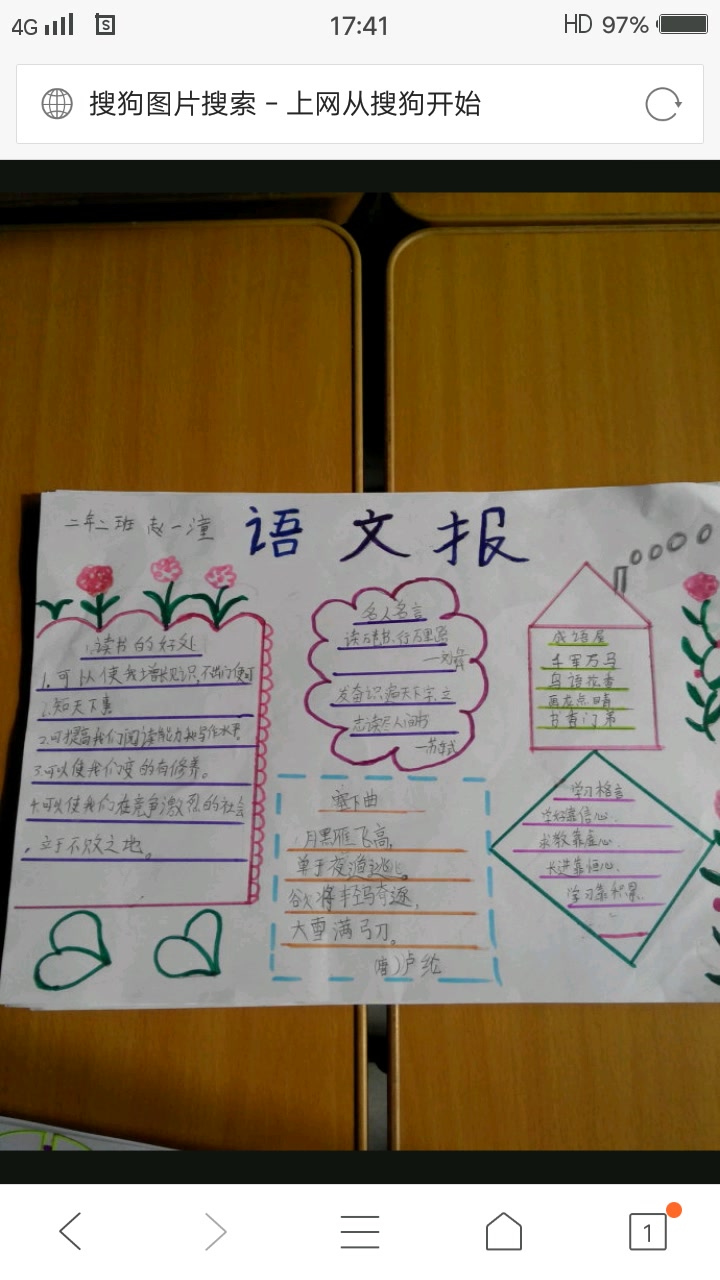 4G
17:41
HD 97%
搜狗图片搜索 - 上网从搜狗开始
二年二班 赵一潼
语文报
读书的好处
1.可以使我增长见识,不出门便可
知天下事
2.可提高我们阅读能力和写作水平
3.可以使我们变的有修养。
4.可以使我们在竞争激烈的社会
立于不败之地。
名人名言
读万卷书、行万里路
—刘彝
发奋识遍天下字,立
志读尽人间书
—苏轼
塞下曲
月黑雁飞高,
单于夜遁逃。
欲将轻骑逐,
大雪满弓刀。
(唐)卢纶
成语屋
千军万马
鸟语花香
画龙点睛
书香门弟
学习格言
学好靠信心、
求教靠虚心、
长进靠恒心、
学习靠积累、
1